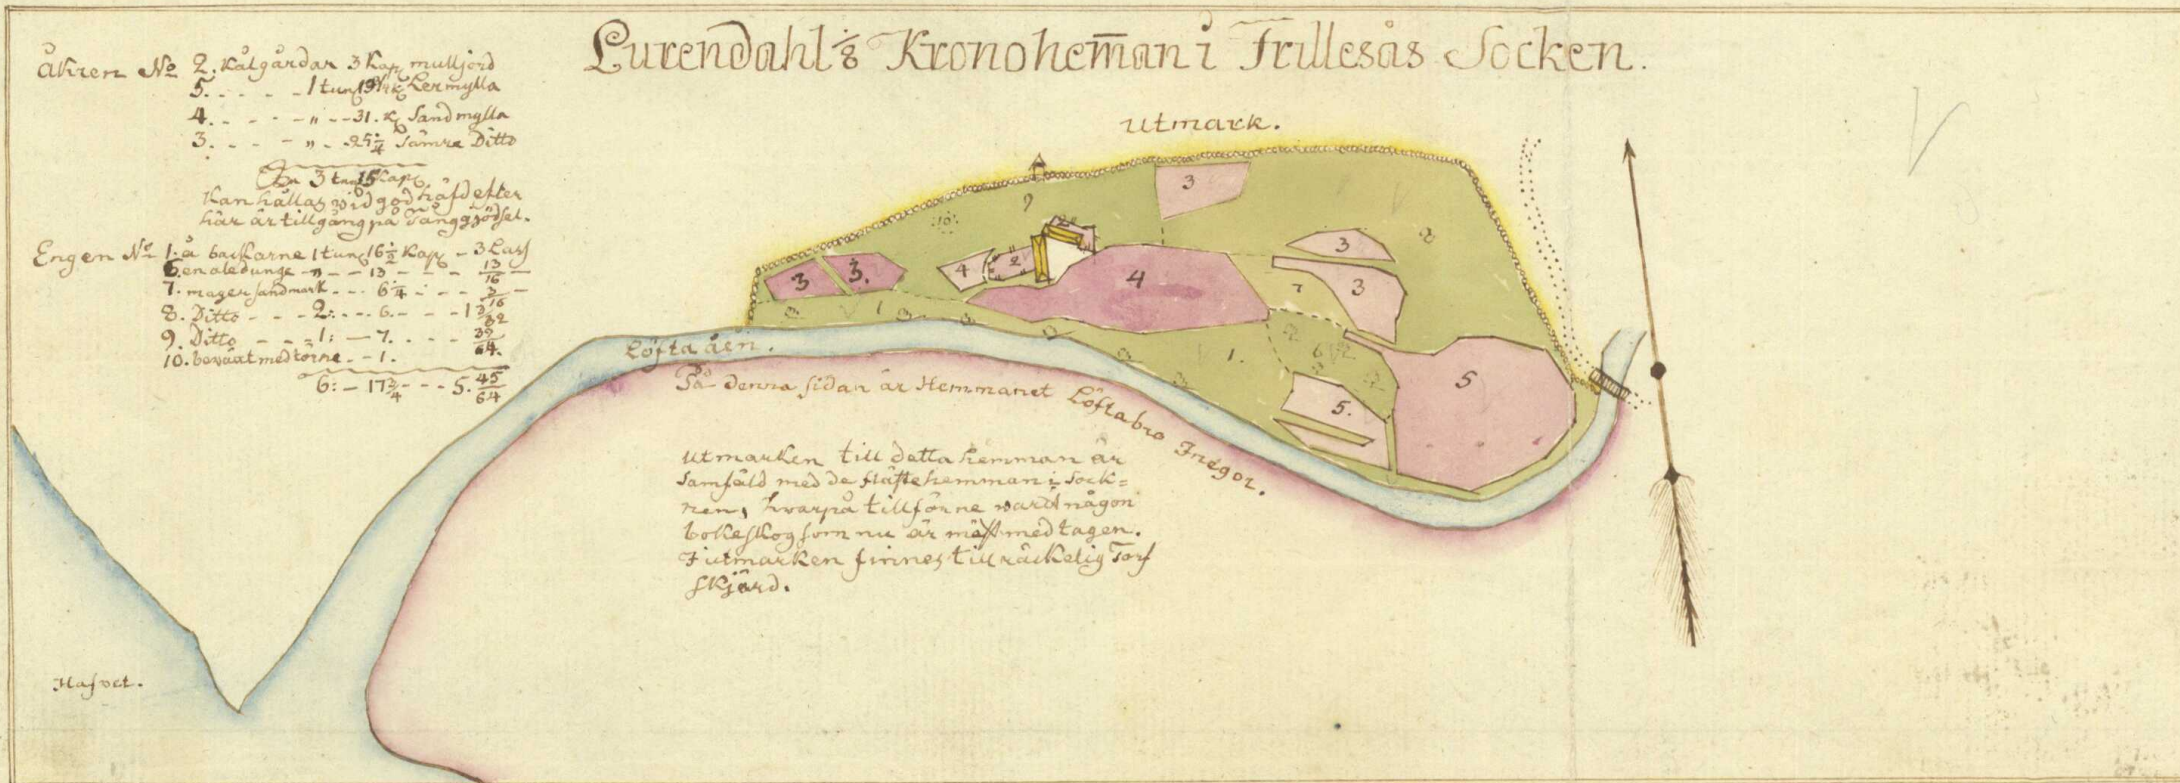 Lurendahl 1/8 Kronoheman i Frillesås Socken.
Åkren No 2. Kålgårdar 3 Kap mulljord
5. - - - - - 1 tun 19 Lermylla
4. - - - - " - - 31. k Sandmylla
3. - - - " - - 25 1/4 Sämre Ditto
3 tun 15 Kap
Kan hållas vid god häfd efter
här är tillgång på Tånggjödsel.
Engen No 1. å backarne 1 tun 16 1/2 Kap - 3 Lass
6. en aledunge - " - - 13 - - - 13/16
7. mager sandmark - - - 6 1/4 - - - 3/16
8. Ditto - - - 2: - - - 6. - - - 1 3/32
9. Ditto - - - 1: - 7. - - - 39/64.
10. beväxt med törne - - 1.
6: - 17 3/4 - - - 5. 45/64
Utmark.
3
9
10.
2
3
8
3
3.
4
2
4
7
3
1
1.
6
5
5.
Löfta åen.
På denna sidan är Hemmanet Löftabro Inegor.
Utmarken till detta hemman är
samfäld med de flästehemman i Sock=
nen, hvarpå tillförne varit någon
bokeskog som nu är mäst medtagen.
I utmarken finnes tillräckelig Torf
skjärd.
Hafvet.